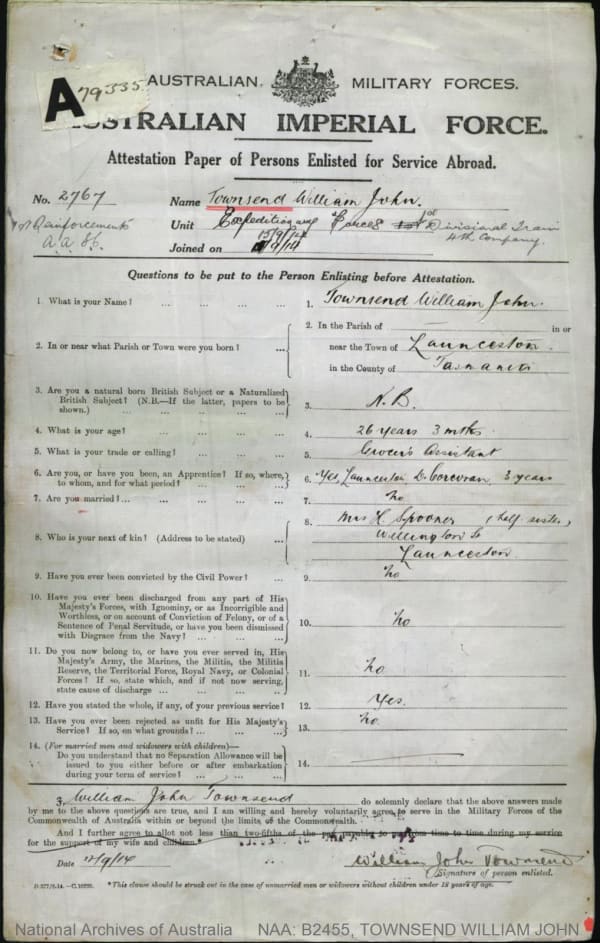 A 79335
AUSTRALIAN MILITARY FORCES.
AUSTRALIAN IMPERIAL FORCE.
Attestation Paper of Persons Enlisted for Service Abroad.
No. 2767 Name Townsend William John.
Reinforcements Unit Expeditionary Forces 1st Divisional Train
4th Company.
Joined on 15/9/14
Questions to be put to the Person Enlisting before Attestation.
1. What is your Name? ... 1. Townsend William John.
2. In or near what Parish or Town were you born? ... 2. In the Parish of in or
near the Town of Launceston
in the County of Tasmania
3. Are you a natural born British Subject or a Naturalized
British Subject? (N.B.—If the latter, papers to be
shown.) 3. N.B.
4. What is your age? 4. 26 years 3 mths
5. What is your trade or calling? 5. Grocer's Assistant
6. Are you, or have you been, an Apprentice? If so, where,
to whom, and for what period? 6. Yes Launceston D. Corcoran 3 years
7. Are you married? 7. No
8. Who is your next of kin? (Address to be stated) 8. Mrs H. Spooner (half sister)
Wellington St
Launceston
9. Have you ever been convicted by the Civil Power? 9. No
10. Have you ever been discharged from any part of His
Majesty's Forces, with Ignominy, or as Incorrigible and
Worthless, or on account of Conviction of Felony, or of a
Sentence of Penal Servitude, or have you been dismissed
with Disgrace from the Navy? 10. No
11. Do you now belong to, or have you ever served in, His
Majesty's Army, the Marines, the Militia, the Militia
Reserve, the Territorial Force, Royal Navy, or Colonial
Forces? If so, state which, and if not now serving,
state cause of discharge 11. No
12. Have you stated the whole, if any, of your previous service? 12. Yes.
13. Have you ever been rejected as unfit for His Majesty's
Service? If so, on what grounds? 13. No
14. (For married men and widowers with children)—
Do you understand that no Separation Allowance will be
issued to you either before or after embarkation
during your term of service? 14.
I, William John Townsend do solemnly declare that the above answers made
by me to the above questions are true, and I am willing and hereby voluntarily agree to serve in the Military Forces of the
Commonwealth of Australia within or beyond the limits of the Commonwealth.
And I further agree to allot not less than two-fifths of the pay payable to me from time to time during my service
for the support of my wife and children.*
Date 12/9/14 William John Townsend
Signature of person enlisted.
*This clause should be struck out in the case of unmarried men or widowers without children under 18 years of age.
National Archives of Australia NAA: B2455, TOWNSEND WILLIAM JOHN